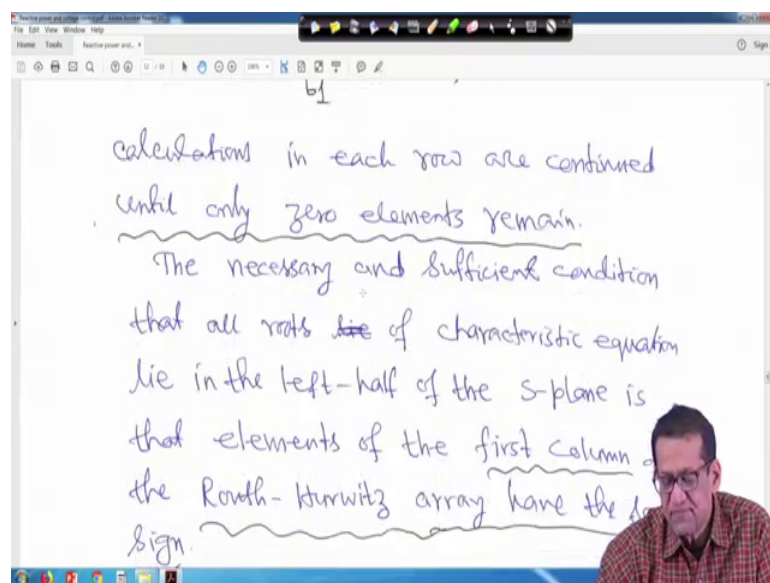 Reactive power and voltage control.pdf - Adobe Acrobat Reader DC
File Edit View Window Help
Home Tools Reactive power and... ×
Sign
b1
calculations in each row are continued
until only zero elements remain.
The necessary and sufficient condition
that all roots lie of characteristic equation
lie in the left-half of the s-plane is
that elements of the first column
the Routh-Hurwitz array have the
sign.